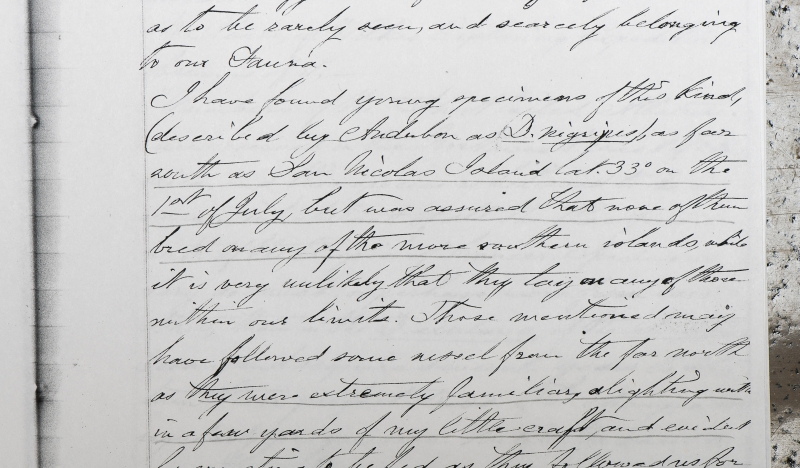 as to be rarely seen, and scarcely belonging
to our Fauna.
I have found young specimens of this kind,
(described by Audubon as D. nigripes), as far
south as San Nicolas Island lat. 33° on the
1st of July, but was assured that none of them
bred on any of the more southern islands, while
it is very unlikely that they lay on any of those
within our limits. Those mentioned may
have followed some vessel from the far north
as they were extremely familiar, alighting with
in a few yards of my little craft, and evident
to be fed as they followed us for